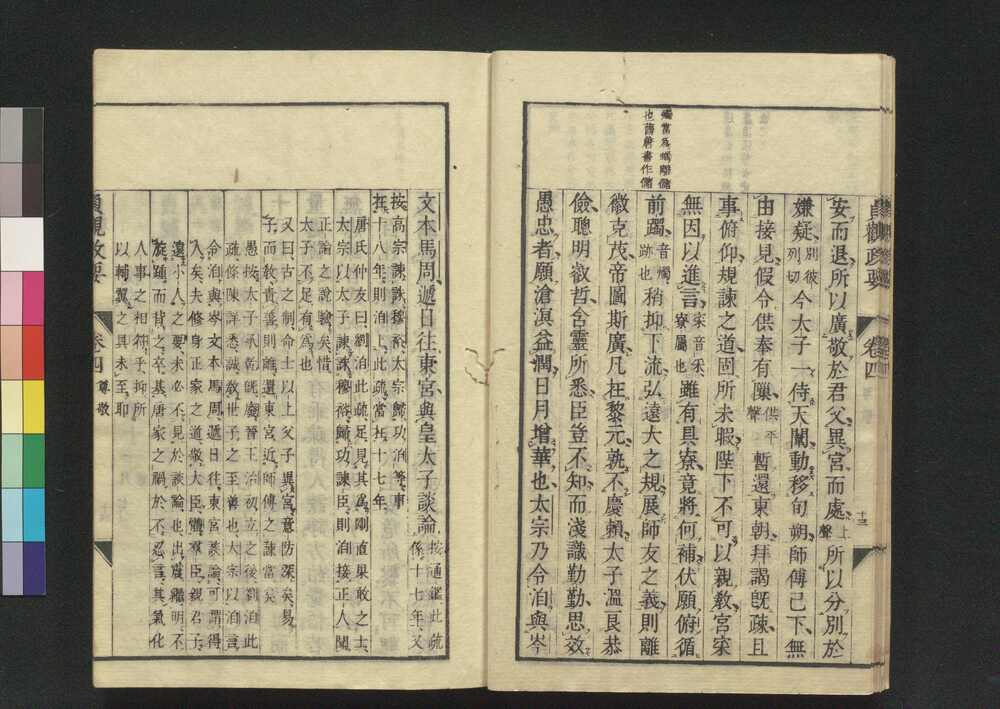 貞觀政要 卷四 十三
安而退所以廣敬於君父異宮而處上聲所以分別於
嫌疑別彼列切今太子一侍天闈動移旬朔師傅已下無
由接見假令供奉有隙供平聲暫還東朝拜謁旣疎且
事俯仰規諫之道固所未暇陛下不可以親敎宮寀
無因以進言寀音采寮屬也雖有具寮竟將何補伏願俯循
前躅音燭跡也稍抑下流弘遠大之規展師友之義則離
徽克茂帝圖斯廣凡在黎元孰不慶賴太子溫良恭
儉聰明叡哲含靈所悉臣豈不知而淺識勤勤思效
愚忠者願滄溟益潤日月增華也太宗乃令洎與岑
文本馬周遞日往東宮與皇太子談論按通鑑此疏係十七年又
按高宗諫誅穆裕太宗歸功洎等事
在十八年則洎上此疏當在十七年
唐氏仲友曰劉洎此疏足見其爲剛直果敢之士
太宗以太子諫誅穆裕歸功諫臣則洎接正人聞
正論之說驗矣惜
太子不足有爲也
又曰古之制命士以上父子異宮意防深矣易
子而敎貴善則離還東宮近師傅之諫當矣
愚按太子承乾旣廢晉王治初立之後劉洎此
疏條陳詳悉誠敎世子之至善也太宗以洎言
令洎與岑文本馬周遞日往東宮談論可謂得
人矣夫修身正家之道敬大臣體羣臣親君子
遠小人之要未必不見於談論也出震繼明不
旋踵而背之卒基唐家之禍於不忍言其氣化
人事之相符乎抑所
以輔翼之具未至耶
貞觀政要 卷四 尊敬